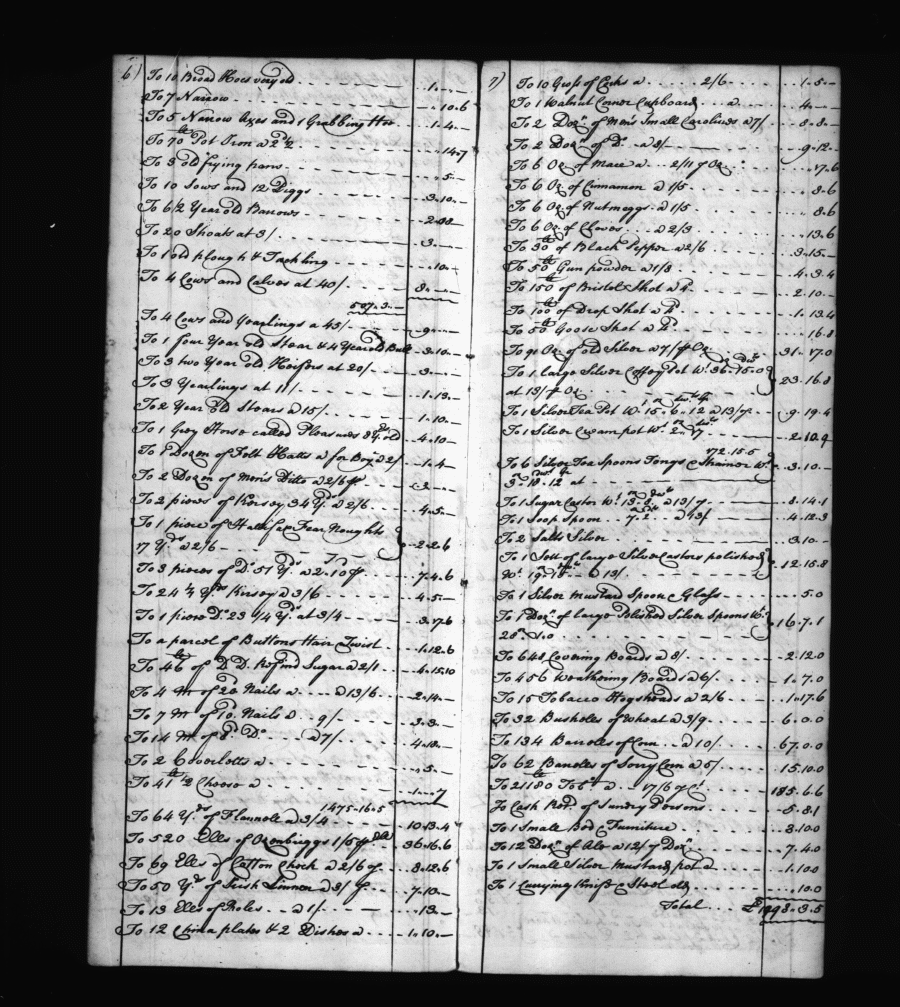 6)
To 10 Broad Hoes very old - - - 1 " - " -
To 7 Narrow - - - " 10 . 6
To 5 Narrow Axes and 1 Grubbing Hoe 1 . 4 . -
To 70 lb Pot Iron a 2d½ - - - " 14 . 7
To 3 old frying pans - - - " 5 . -
To 10 Sows and 12 Piggs - - - 3 . 10 . -
To 6 2 Year old Barrows - - -
To 20 Shoats at 3/. - - - 3 . - . -
To 1 old plough & Tackling - - - " 10 . -
To 4 Cows and Calves at 40/- - - - 8 . - . -
507 . 3 . -
To 4 Cows and Yearlings a 45/- - - - 9 . - . -
To 1 four Year old Stear & 4 Year old Bull - 3 . 10 . -
To 3 two Year old Heifers at 20/- - - 3 . - . -
To 3 Yearlings at 11/- - - - 1 . 13 . -
To 2 Year old Stears a 15/- - - - 1 . 10 . -
To 1 Grey Horse called Pleasures 8 Yrs old 4 . 10 . -
To 1 Dozen of Felt Hatts a for Boys a 2/ - 1 . 4 -
To 2 Dozen of men's Ditto a 2/6 ps - - - 3 . - . -
To 2 pieces of Kersey 34 Yds a 2/6 - - - 4 . 5 . -
To 1 piece of Hallifax Fear Noughts
17 Yds a 2/6 - - - 2 . 2 . 6
To 3 pieces of Do 57 Yds a 2 . 10 ps - - - 7 . 4 . 6
To 24 ½ Yds Kersey a 3/6 - - - 4 . 5 . -
To 1 piece Do 23 1/4 Yds at 3/4 - - - 3 . 17 . 6
To a parcel of Buttons Hair Twist - - 1 . 12 . 6
To 46 lb of D. D. Refined Sugar a 2/1 - 4 . 15 . 10
To 4 M of 20 Nails a - - - a 13/6 - - - 2 . 14 . -
To 7 M of 10d Nails a - - 9/- - - - 3 . 3 . -
To 14 M of 8d Do - - a 7/- - - - 4 . 18 . -
To 2 Coverlotts a - - - . 5 . -
To 41 lb ½ Cheese a - - - 1 . - . 7
1475 . 16 . 5
To 64 Yds of Flannell a 3/4 - - - 10 . 13 . 4
To 520 Elles of Ozenbriggs 1/5 p Ell 36 . 16 . 6
To 69 Elles of Cotton Check a 2/6 p - - 8 . 12 . 6
To 50 Yds of Irish Linnen a 3/ p - - 7 . 10 . -
To 13 Elles of Roles - - a 1/- - - - . 13 . -
To 12 China plates & 2 Dishes a - - - 1 . 10 . -
7)
To 10 Gross of Corks a . . . . 2/6 . . . . 1 . 5 . -
To 1 Walnut Corner Cupboard . . . a . . . 4 . - . -
To 2 Dozn of Men's Small Carolines a 7/ . 8 . 8 . -
To 2 Dozn of Do . . a 8/- . . . 9 . 12 . -
To 6 Oz of Mace a . . . 2/11 p Oz . . . . 17 . 6
To 6 Oz of Cinnamon a 1/5 . . . . 8 . 6
To 6 Oz of Nutmeggs . a 1/5 . . . . 8 . 6
To 6 Oz of Cloves . . . a 2/3 . . . . 13 . 6
To 30 lb of Black Pepper a 2/6 . . . 3 . 15 . -
To 50 lb Gun powder a 1/8 . . . 4 . 3 . 4
To 150 lb of Bristol Shot a 4d . . . 2 . 10 . -
To 100 lb of Drop Shot a 4d . . . 1 . 13 . 4
To 50 lb Goose Shot a 4d . . . . 16 . 8
To 91 Oz of old Silver a 7/ p Oz . . . 31 . 17 . 0
To 1 large Silver Coffey Pot Wt. 36 oz 15 dwt 0
at 13/ p Oz . . . 23 . 16 . 8
To 1 Silver Tea Pot Wt. 15 oz 6 dwt 12 gr a 13/ p - - 9 . 19 . 4
To 1 Silver Cream pot Wt. 2 oz 17 dwt - - - 2 . 10 . 9
172 . 15 . 5
To 6 Silver Tea Spoons Tongs & Strainer Wt.
3 oz 18 dwt 12 gr at - - - 3 . 10 . -
To 1 Sugar Castor Wt. 13 oz 8 dwt a 13/ p - - - 8 . 14 . 1
To 1 Soop Spoon . . 7 oz 2 dwt a 13/ - - - 4 . 12 . 3
To 2 Salts Silver - - - 3 . 10 . -
To 1 Sett of large Silver Castors polished
Wt. 19 oz 18 dwt - - - a 13/. . . 12 . 15 . 8
To 1 Silver Mustard Spoon & Glass - - - . 5 . 0
To 1 Dozn of large Polished Silver Spoons Wt.
28 oz 1 . 0 . . . 16 . 7 . 1
To 648 Covering Boards a 8/. . . . 2 . 12 . 0
To 456 Weathering Boards a 6/. . . . 1 . 7 . 0
To 15 Tobacco Hogsheads a 2/6 . . . 1 . 17 . 6
To 32 Bushels of Wheat a 3/9 . . . 6 . 0 . 0
To 134 Barrels of Corn . . a 10/. . . . 67 . 0 . 0
To 62 Barrels of Sorry Corn a 5/ . . . 15 . 10 . 0
To 21180 lb Tobo a . . 17/6 p Ct . . . 185 . 6 . 6
To Cash Recd. of Sundry Persons . . . 5 . 8 . 1
To 1 Small Bed Furniture . . . 3 . 10 . 0
To 12 Dozn of Ale a 12/ p Dozn . . . 7 . 4 . 0
To 1 Small Silver Mustard pot a . . . 1 . 10 . 0
To 1 Currying Knife & Steel old . . . . 10 . 0
Total . . . £ 1998 . 3 . 5